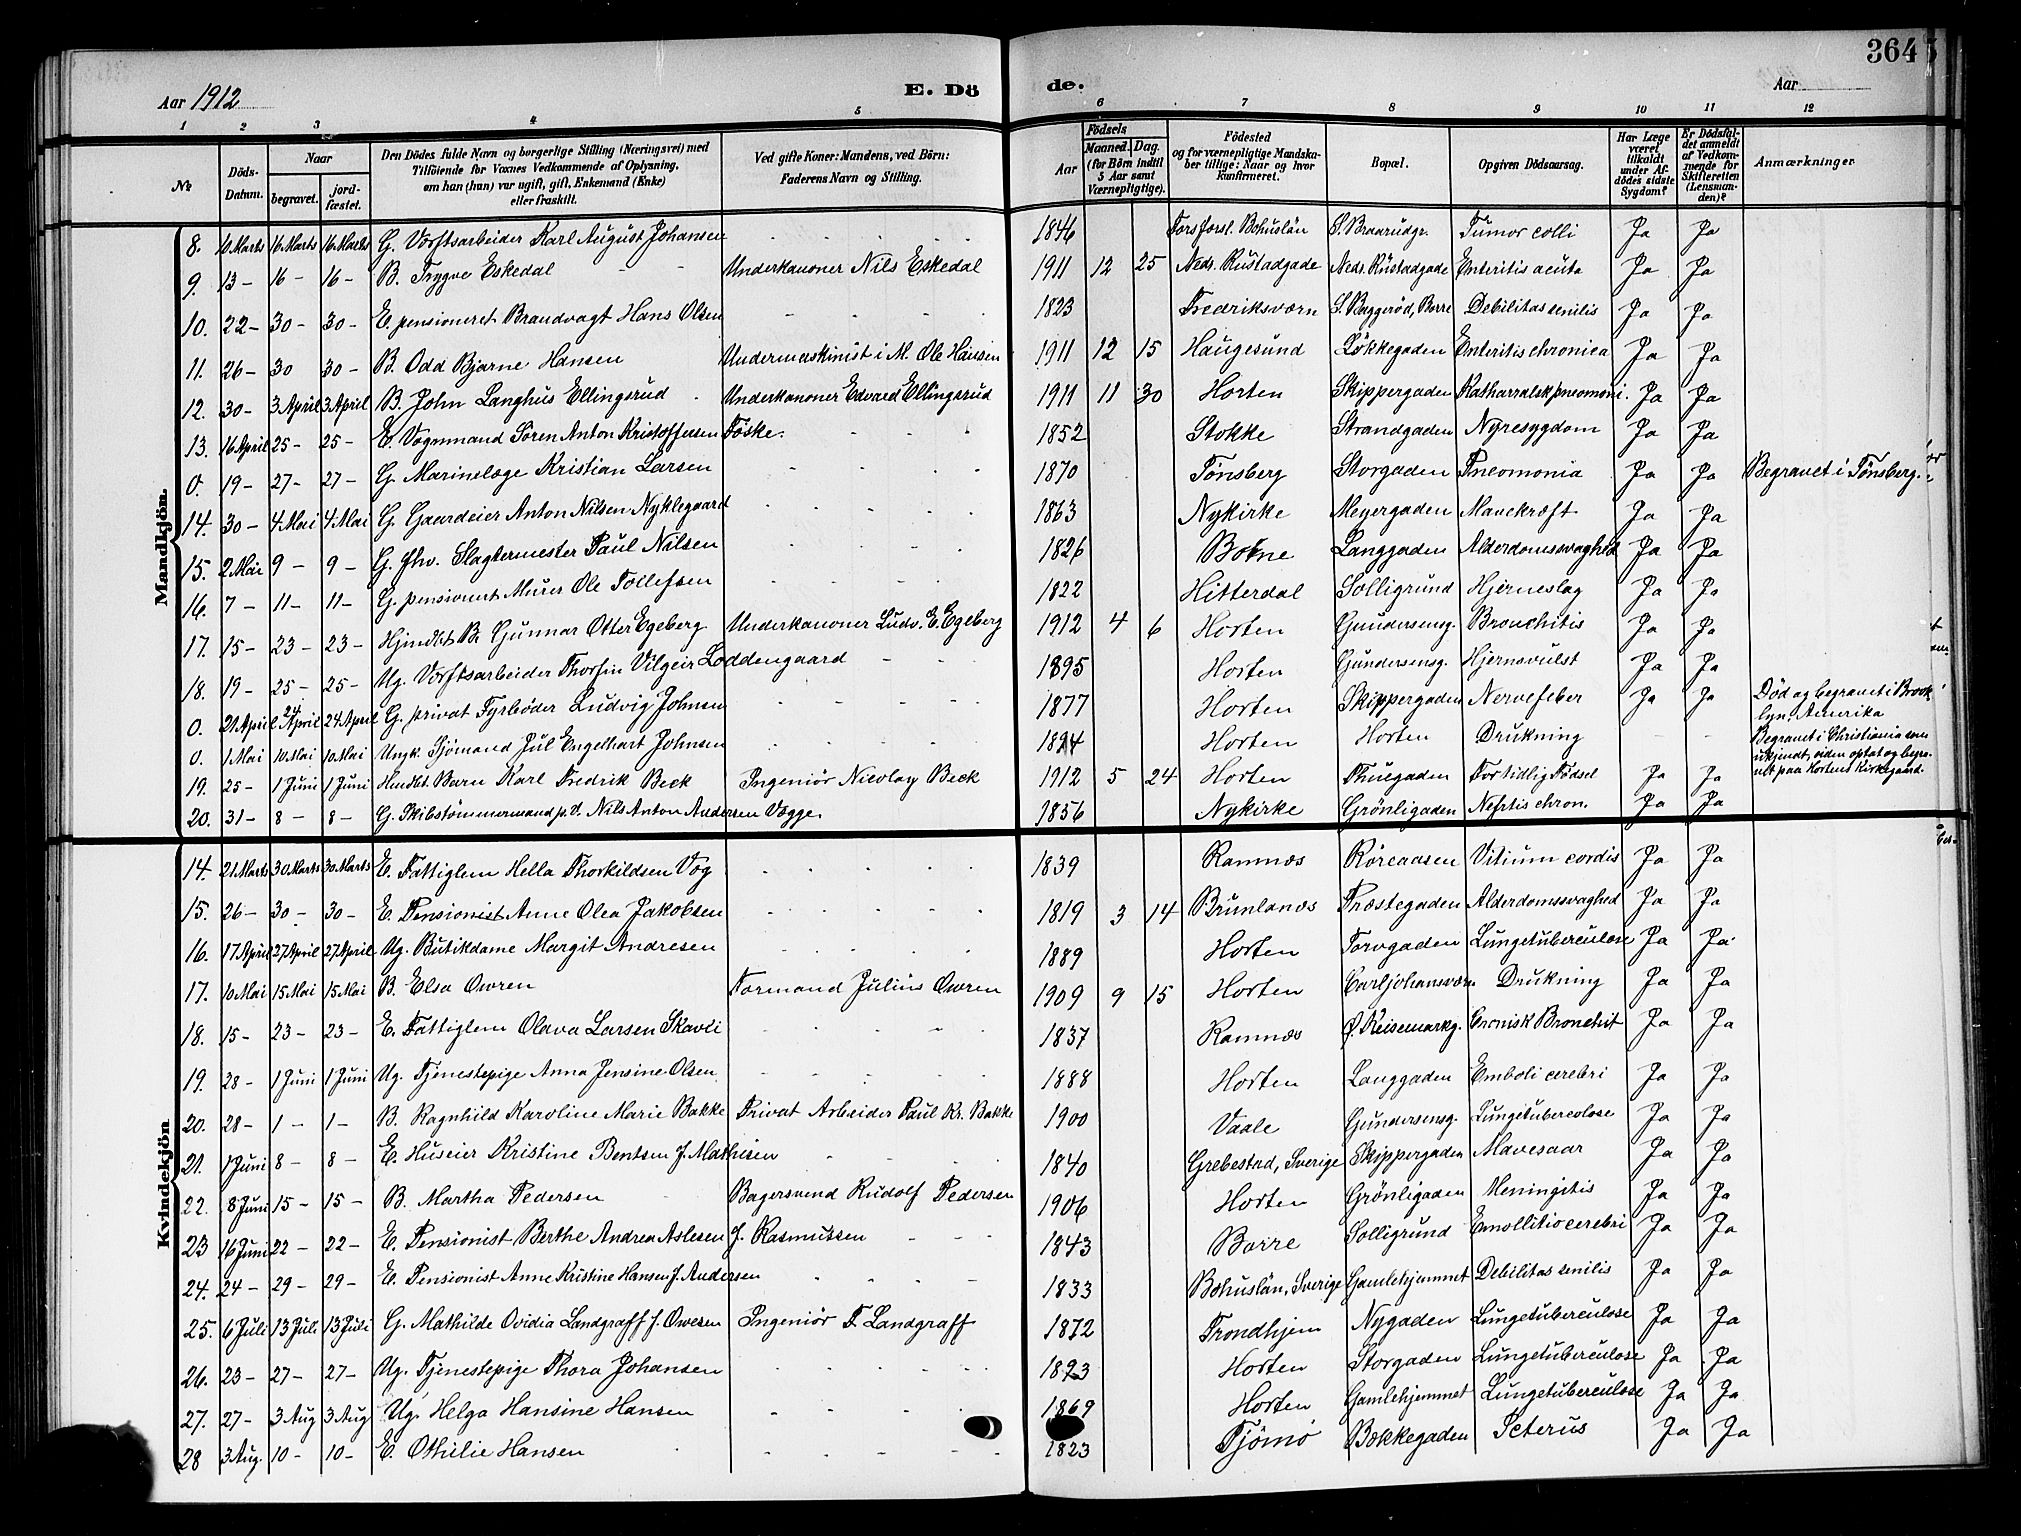 364
Aar 1912
E. Dö
de.
Aar
1 2 3 4 5 6 7 8 9 10 11 12
№
Döds-Datum.
Naar
begravet.
jord-fæstet.
Den Dödes fulde Navn og borgerlige Stilling (Næringsvei) med Tilföiende for Voxnes Vedkommende af Oplysning, om han (hun) var ugift, gift, Enkemand (Enke) eller fraskilt.
Ved gifte Koner: Mandens, ved Börn: Faderens Navn og Stilling.
Födsels
Aar
Maaned. Dag.
(for Börn indtil 5 Aar samt Værnepligtige).
Födested og for værnepligtige Mandska-ber tillige: Naar og hvor konfirmeret.
Bopæl.
Opgiven Dödsaarsag.
Har Læge været tilkaldt under Af-dödes sidste Sygdom?
Er Dödsfal-det anmeldt af Vedkom-mende for Skifteretten (Lensman-den)?
Anmærkninger
Mandkjön.
8. 10 Marts 16 Marts 16 Marts G. Værftsarbeider Karl August Johansen 1846 Bohuslän S. Braarudgr. Tumor colli Ja Ja
9. 13 – 16 – 16 – B. Trygve Eskedal Underkanoner Nils Eskedal 1911 12 25 Neds. Rustadgade Neds. Rustadgade Enteritis acuta Ja Ja
10. 22 – 30 – 30 – E. pensioneret Brandvagt Hans Olsen 1823 Fredriksværn S. Baggeröd, Borre Debilitas senilis Ja Ja
11. 26 – 30 30 – B. Odd Bjarne Hansen Undermaskinist i M. Ole Hansen 1911 12 15 Haugesund Løkkegaden Enteritis chronica Ja Ja
12. 30 – 3 April 3 April B. John Langhus Ellingsrud Underkanoner Edvard Ellingsrud 1911 11 30 Horten Skippergaden Katharralsk pneomoni. Ja Ja
13. 16 April 25 – 25 – E. Vognmand Sören Anton Kristoffersen Föske. 1852 Stokke Strandgaden Nyresygdom Ja Ja
0. 19 – 27 – 27 – G. Marinelæge Kristian Larsen 1870 Tønsberg Storgaden Pneomonia Ja Ja Begravet i Tønsberg.
14. 30 – 4 Mai 4 Mai G. Gaardeier Anton Nilsen Nyklegaard 1863 Nykirke Meyergaden Mavekræft Ja Ja
15. 2 Mai 9 – 9 – G. fhv. Slagtermester Paul Nilsen 1826 Botne Langgaden Alderdomssvaghed Ja Ja
16. 7 – 11 – 11 – G. pensionert Murer Ole Tollefsen 1822 Hitterdal Solligrund Hjerneslag Ja Ja
17. 15 – 23 – 23 – Hjmdbt. B. Gunnar Otter Egeberg Underkanoner Ludv. E. Egeberg 1912 4 6 Horten Gundersensg. Bronchitis Ja Ja
18. 19 – 25 – 25 – Ug. Værftsarbeider Thorfin Vilgeir Loddengaard 1895 Horten Gundersensg. Hjernsvulst Ja Ja
0. 21 April 24 April 24 April G. privat Fyrböder Ludvig Johnsen 1877 Horten Skippergaden Nervefeber Ja Ja Död og begravet i Brook-lyn, Amerika
0. 1 Mai 10 Mai 10 Mai Ungk. Sjömand Jul Engelhart Johnsen 1894 Horten Horten Drukning – – Begravet i Christiania som ukjendt, siden optat og begra-vet paa Hortens Kirkegaard.
19. 25 – 1 Juni 1 Juni Hmdbt. Barn Karl Fredrik Beck Ingeniör Nicolay Beck 1912 5 24 Horten Thuegaden Fortidlig Födsel Ja Ja
20. 31 – 8 – 8 – G. Skibstömmermand p. V. Nils Anton Andersen Vægge. 1856 Nykirke Grönligaden Nefrtis chron. Ja Ja
Kvindekjön
14. 21 Marts 30 Marts 30 Marts E. Fattiglem Hella Thorkildsen Vög 1839 Ramnæs Röreaasen Vitium cordis Ja Ja
15. 26 – 30 – 30 – E. Pensionist Anne Olea Jakobsen 1819 3 14 Brunlanæs Præstegaden Alderdomssvaghed Ja Ja
16. 17 April 27 April 27 April Ug. Butikdame Margit Andresen 1889 Horten Torvgaden Lungetuberculose Ja Ja
17. 10 Mai 15 Mai 15 Mai B. Elsa Owren Formand Julius Owren 1909 9 15 Horten Carljohansværn Drukning Ja Ja
18. 15 – 23 – 23 – E. Fattiglem Olava Larsen Skavli 1837 Ramnæs Ø. Keisemarkg. Cronisk Bronchit Ja Ja
19. 28 – 1 Juni 1 Juni Ug. Tjenestepige Anna Jensine Olsen 1888 Horten Langgaden Emboli cerebri Ja Ja
20. 28 – 1 – 1 – B. Ragnhild Karoline Marie Bakke Privat Arbeider Paul Kr. Bakke 1900 Vaale Gundersensg. Lungetubercolose Ja Ja
21. 1 Juni 8 – 8 – E. Huseier Kristine Bentsen f. Mathisen 1840 Grebestad, Sverige Skippergaden Mavesaar Ja Ja
22. 8 Juni 15 – 15 – B. Martha Pedersen Bagersvend Rudolf Pedersen 1906 Horten Grönligaden Meningitis Ja Ja
23 16 Juni 22 – 22 – E. Pensionist Berthe Andrea Aslesen f. Rasmussen 1843 Borre Solligrund Emollitio cerebri Ja Ja
24. 24 – 29 – 29 – E. Pensionist Anne Kristine Hansen f. Andersen 1833 Bohuslän, Sverige Gamlehjemmet Debilitas senilis Ja Ja
25. 6 Juli 13 Juli 13 Juli G. Mathilde Ovidia Landgraff f. Owesen Ingeniör F. Landgraff 1872 Trondhjem Nygaden Lungetuberculose Ja Ja
26. 23 – 27 – 27 – Ug. Tjenestepige Thora Johansen 1893 Horten Storgaden Lungetuberculose Ja Ja
27. 27 – 3 Aug 3 Aug Ug. Helga Hansine Hansen 1869 Horten Gamlehjemmet Lungetuberculose Ja Ja
28 3 Aug. 10 – 10 – E. Othilie Hansen 1823 Tjömö Bækkegaden Icterus Ja Ja